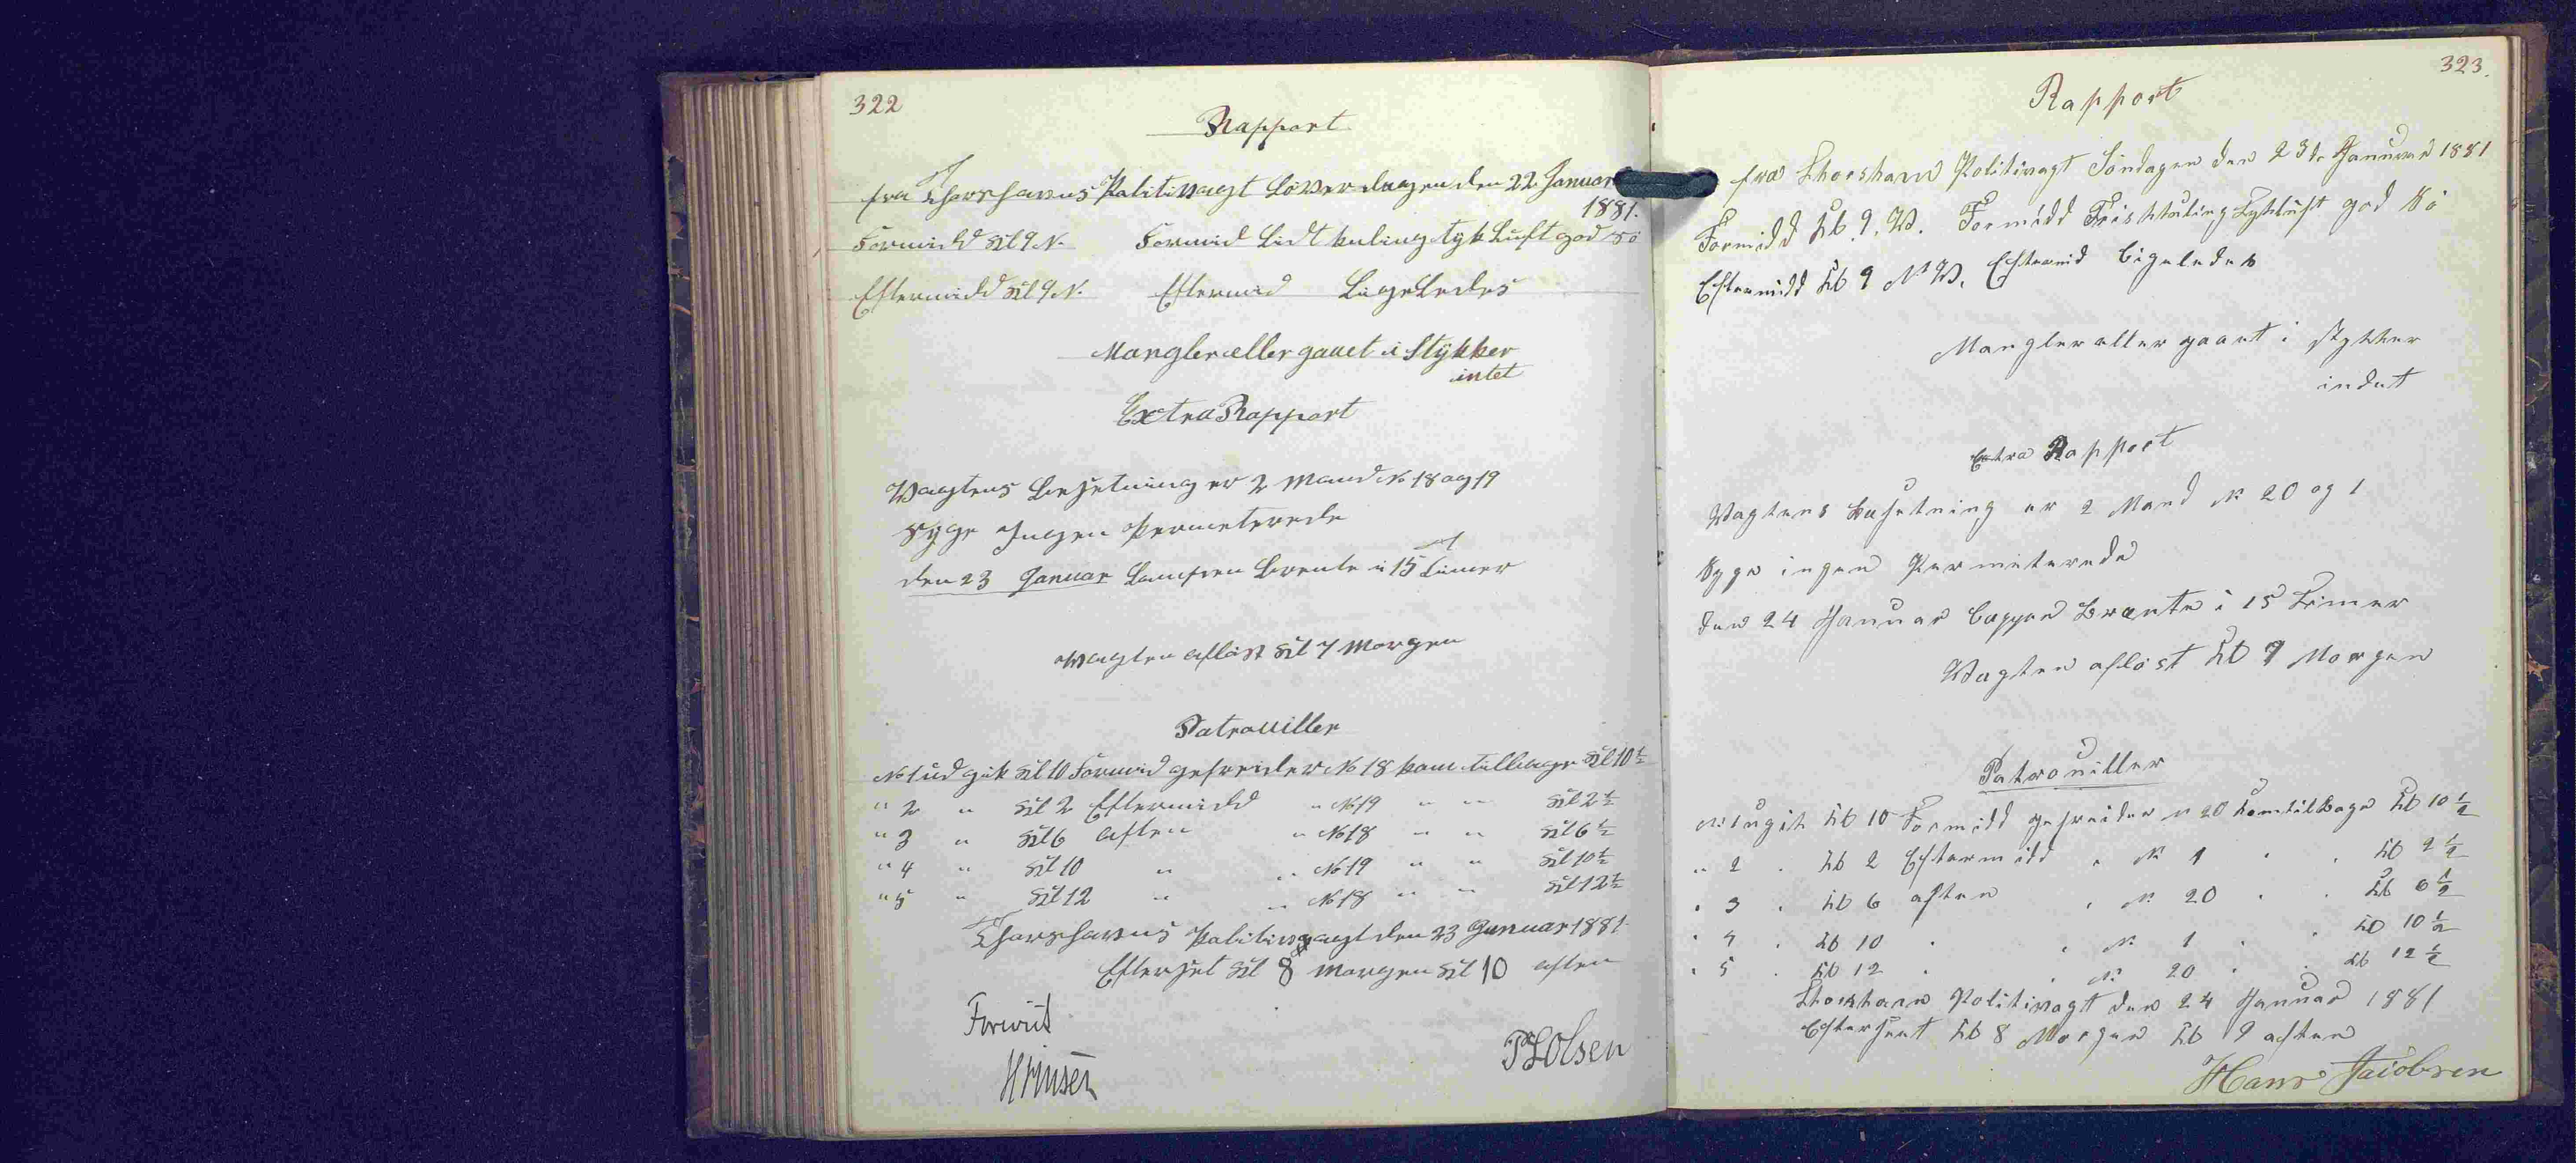 322
Rapport
fra Thorshavns Politivagt Löverdagen den 22. Januar
1881.
Formidd Kl 9 N. Formid Lidt kuling tyk Luft god sö
Eftermidd Kl 9 N. Eftermid Ligeledes
Mangler eller gaaet i Stykker
intet
Extra Rapport
Vagtens Besetning er 2 Mand No 18 og 19
Syge Ingen Permeterede
den 23 Januar Lampen Brente i 15 Timer
Vagten aflöst Kl 7 Morgen
Patrouiller
No 1 udgik Kl 10 Formid gefreider No 18 kom tilbage Kl 10½
" 2 " Kl 2 Eftermidd " No 19 " " Kl 2½
" 3 " Kl 6 aften " No 18 " " Kl 6½
" 4 " Kl 10 " " No 19 " " Kl 10½
" 5 " Kl 12 " " No 18 " " Kl 12½
Thorshavns Politivagt den 23 Januar 1881
Efterset Kl 8 Morgen Kl 10 aften
Forevist
Olsen
323.
Rapport
fra Thorshavn Politivagt Söndagen den 23de Januar 1881
Formidd Kl. 9. W. Formidd Frisk Kuling Tyk Luft god Sö
Eftermidd Kl 9 N W. Eftermid Ligeledes
Mangler eller gaaet i stykker
indet
Extra Rapport
Vagtens Besetning er 2 Mand No 20 og 1
Syge ingen Permiterede
den 24 Januar Lappen Brænte i 15 Timer
Vagten aflöst Kl 7 Morgen
Patrouiller
No 1 ugik Kl 10 Formidd gefreider No 20 kom tilbage Kl 10½
" 2 " Kl 2 Eftermidd " No 1 " " Kl 2½
" 3 " Kl 6 aften " No 20 " " Kl 6½
" 4 " Kl 10 " " No 1 " " Kl 10½
" 5 " Kl 12 " " No 20 " " Kl 12½
Thorshavn Politivagt den 24 Januar 1881
Efterseet Kl 8 Morgen Kl 9 aften
Hans Jacobsen